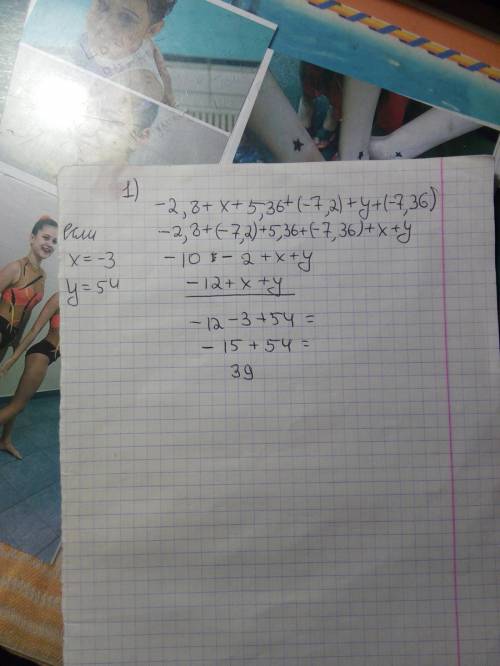 1)
-2,8+x+5,36+(-7,2)+y+(-7,36)
если
-2,8+(-7,2)+5,36+(-7,36)+x+y
x=-3
-10 - 2+x+y
y=54
-12+x+y
-12-3+54=
-15+54=
39